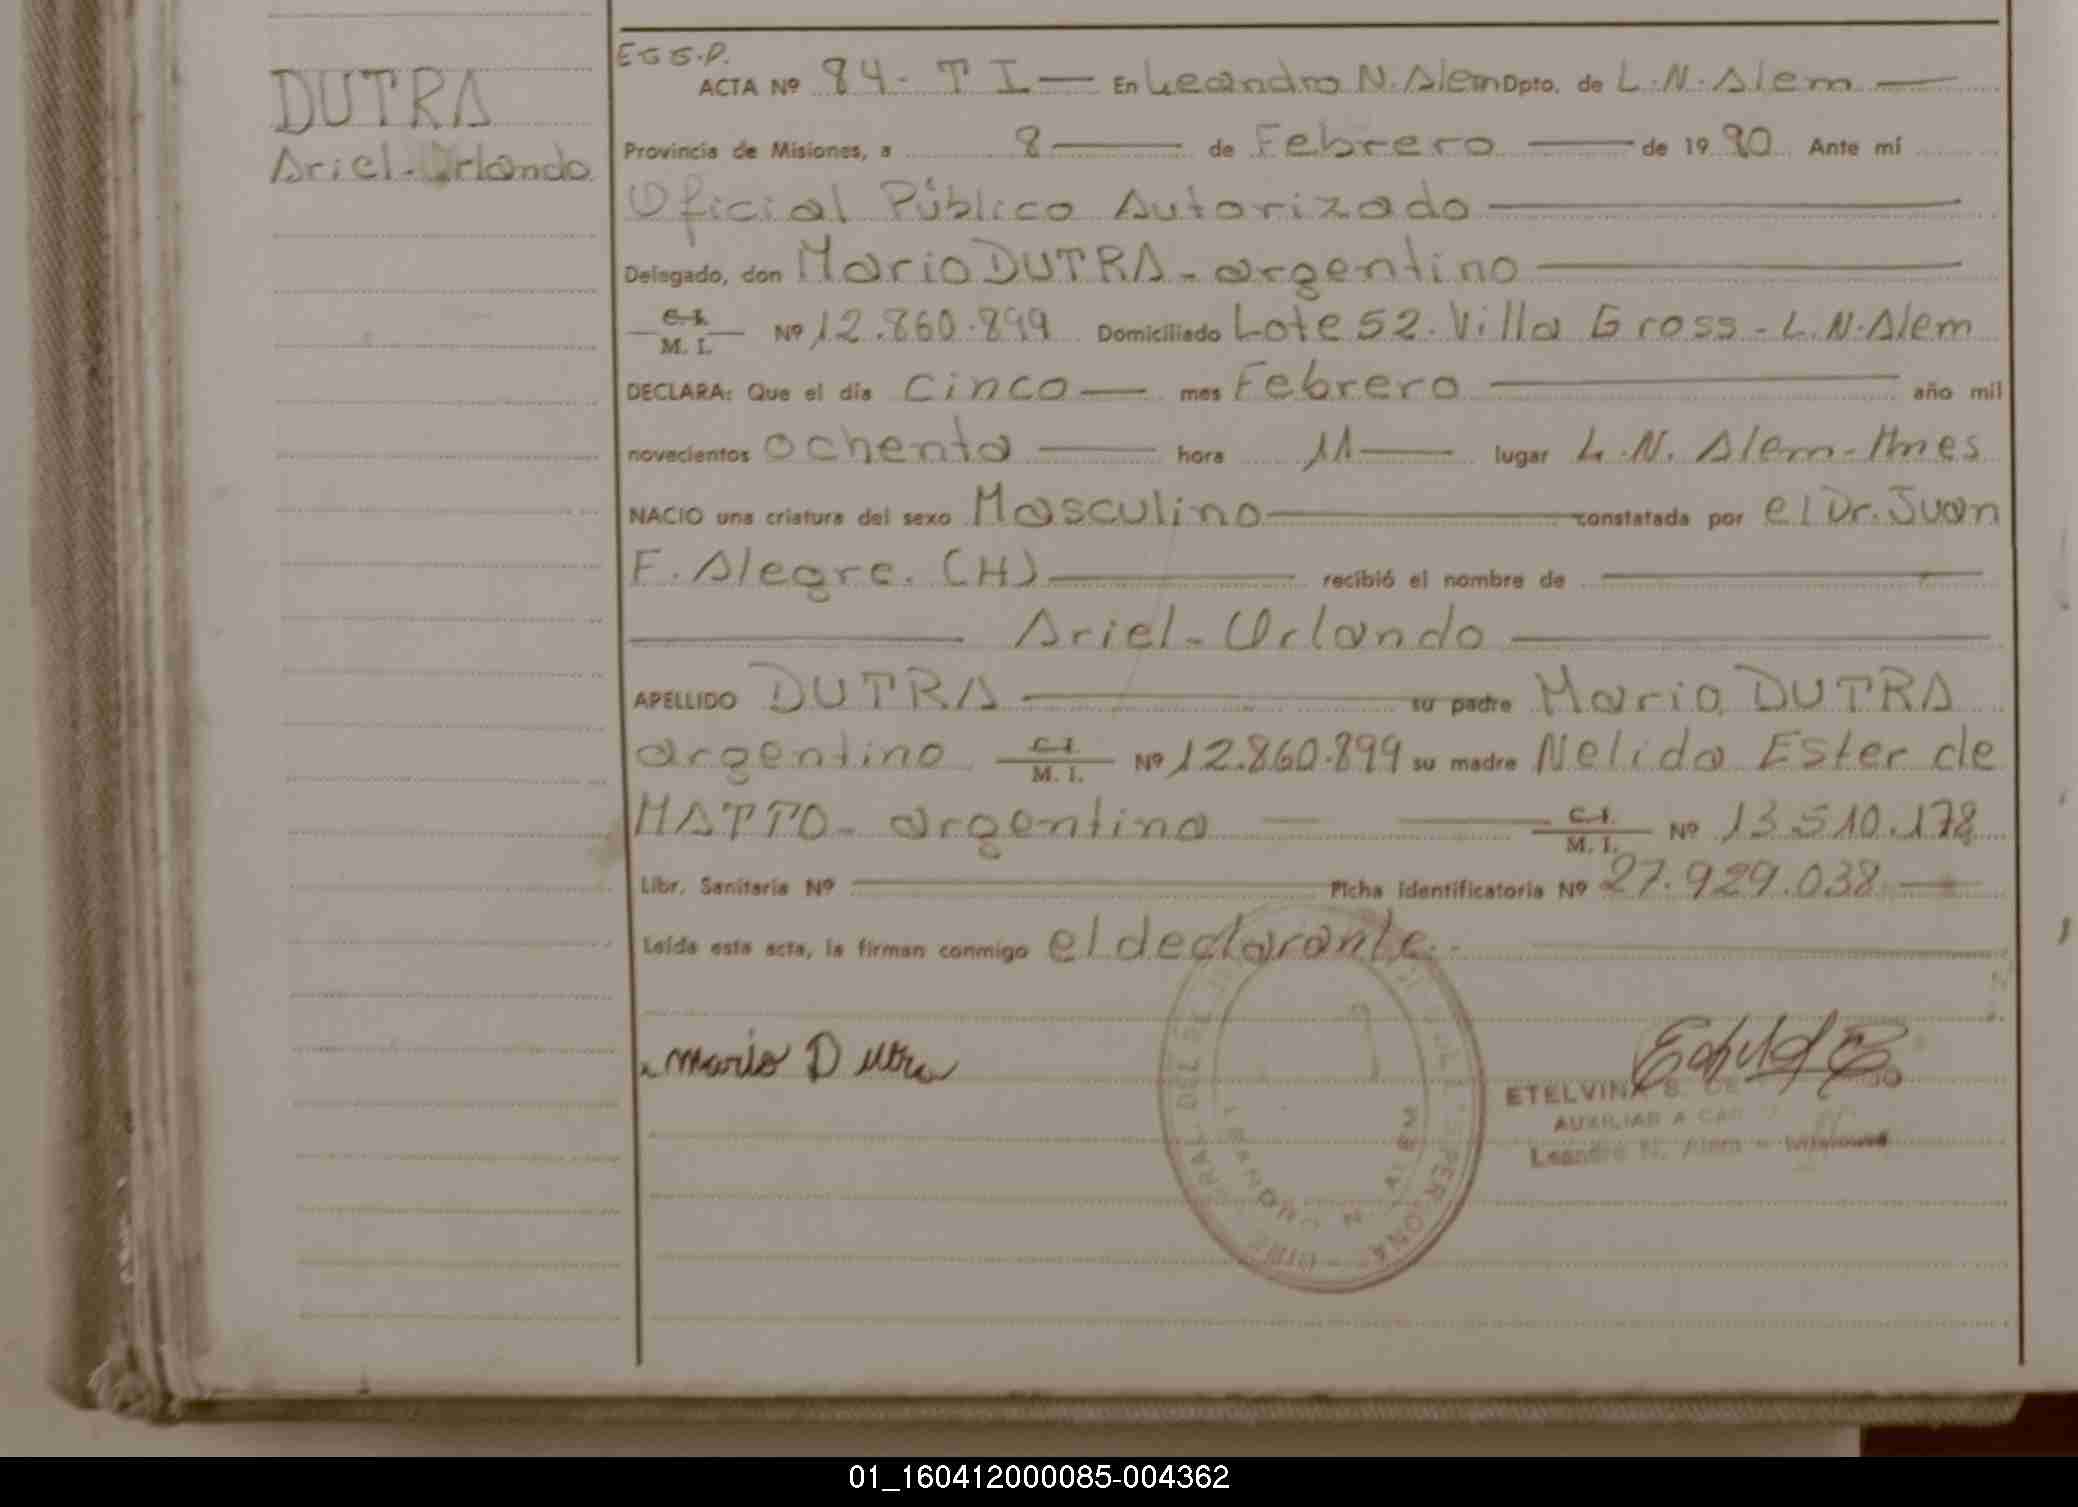 DUTRA
Ariel-Orlando
E G G.P.
ACTA Nº 84- T I — En Leandro N. Alem Dpto. de L.N. Alem —
Provincia de Misiones, a 8 — de Febrero — de 19 80 Ante mí
Oficial Público Autorizado —
Delegado, don Mario DUTRA - argentino —
C.I.
M. I. Nº 12.860.899 Domiciliado Lote 52. Villa Gross - L.N. Alem
DECLARA: Que el día cinco — mes Febrero — año mil
novecientos ochenta — hora 11 — lugar L.N. Alem - Mnes
NACIO una criatura del sexo Masculino — constatada por el Dr. Juan
F. Alegre. (H) — recibió el nombre de —
— Ariel - Orlando —
APELLIDO DUTRA — su padre Mario DUTRA
argentino C.I.
M. I. Nº 12.860.899 su madre Nelida Ester de
MATTO - argentina — C.I.
M. I. Nº 13.510.178
Libr. Sanitaria Nº — Ficha identificatoria Nº 27.929.038 —
Leída esta acta, la firman conmigo el declarante.
Mario Dutra
ETELVINA S. DE
AUXILIAR A CAR
Leandro N. Alem - Misiones
LEANDRO N. ALEM
01_160412000085-004362